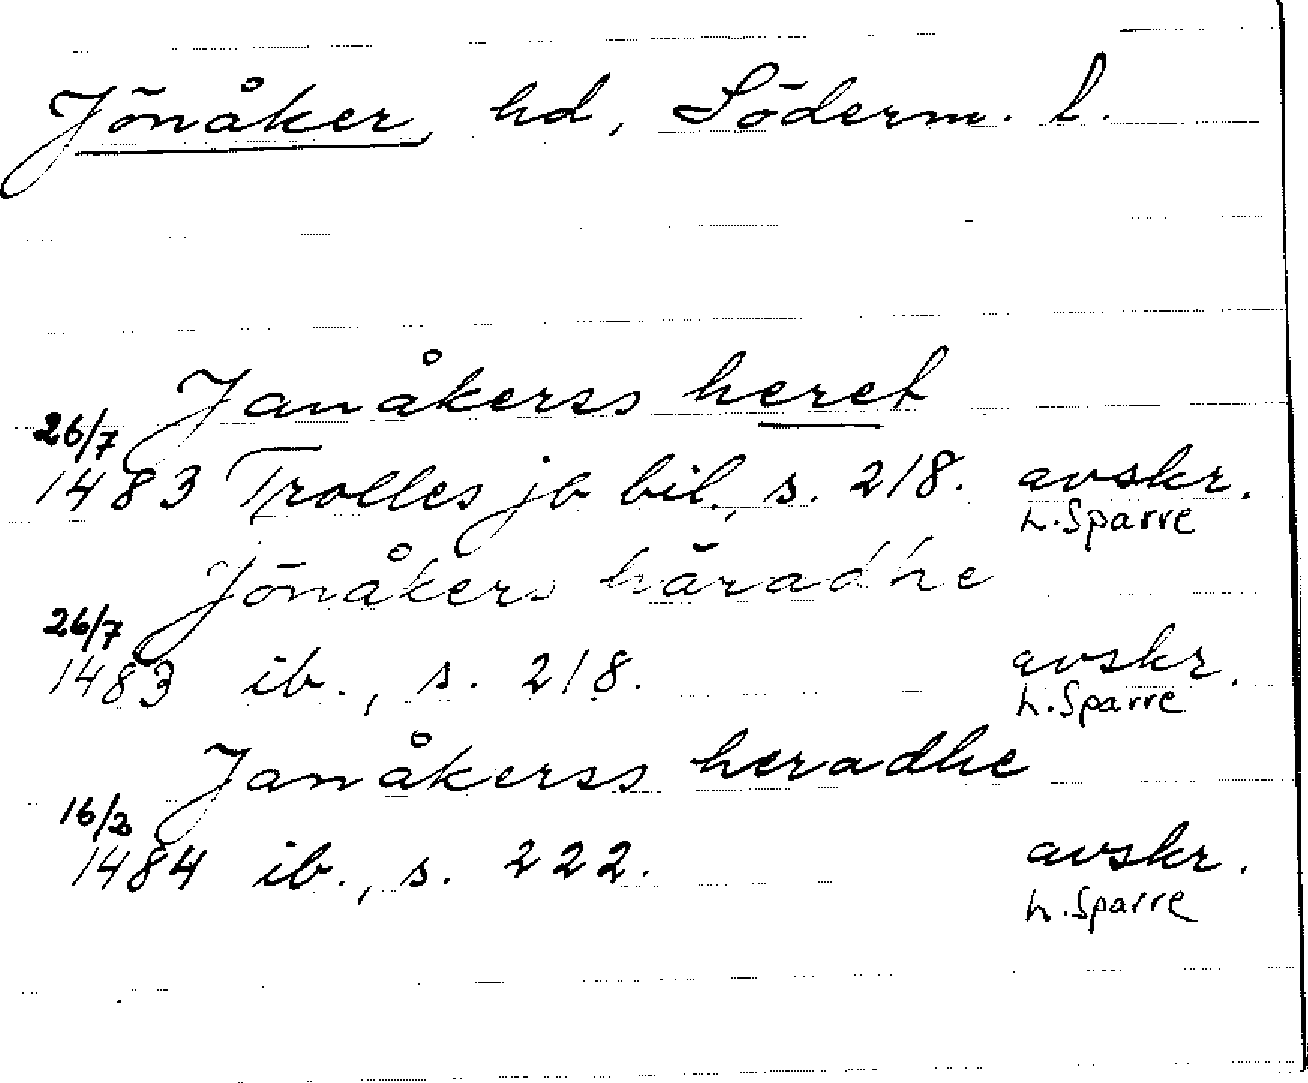 Jönåker, hd, Söderm. l.
Janåkerss heret
26/7
1483 Trolles jb bil., s. 218. avskr.
L. Sparre
Jönåkers häradhe
26/7
1483 ib., s. 218. avskr.
L. Sparre
Janåkerss heradhe
16/2
1484 ib., s. 222. avskr.
L. Sparre